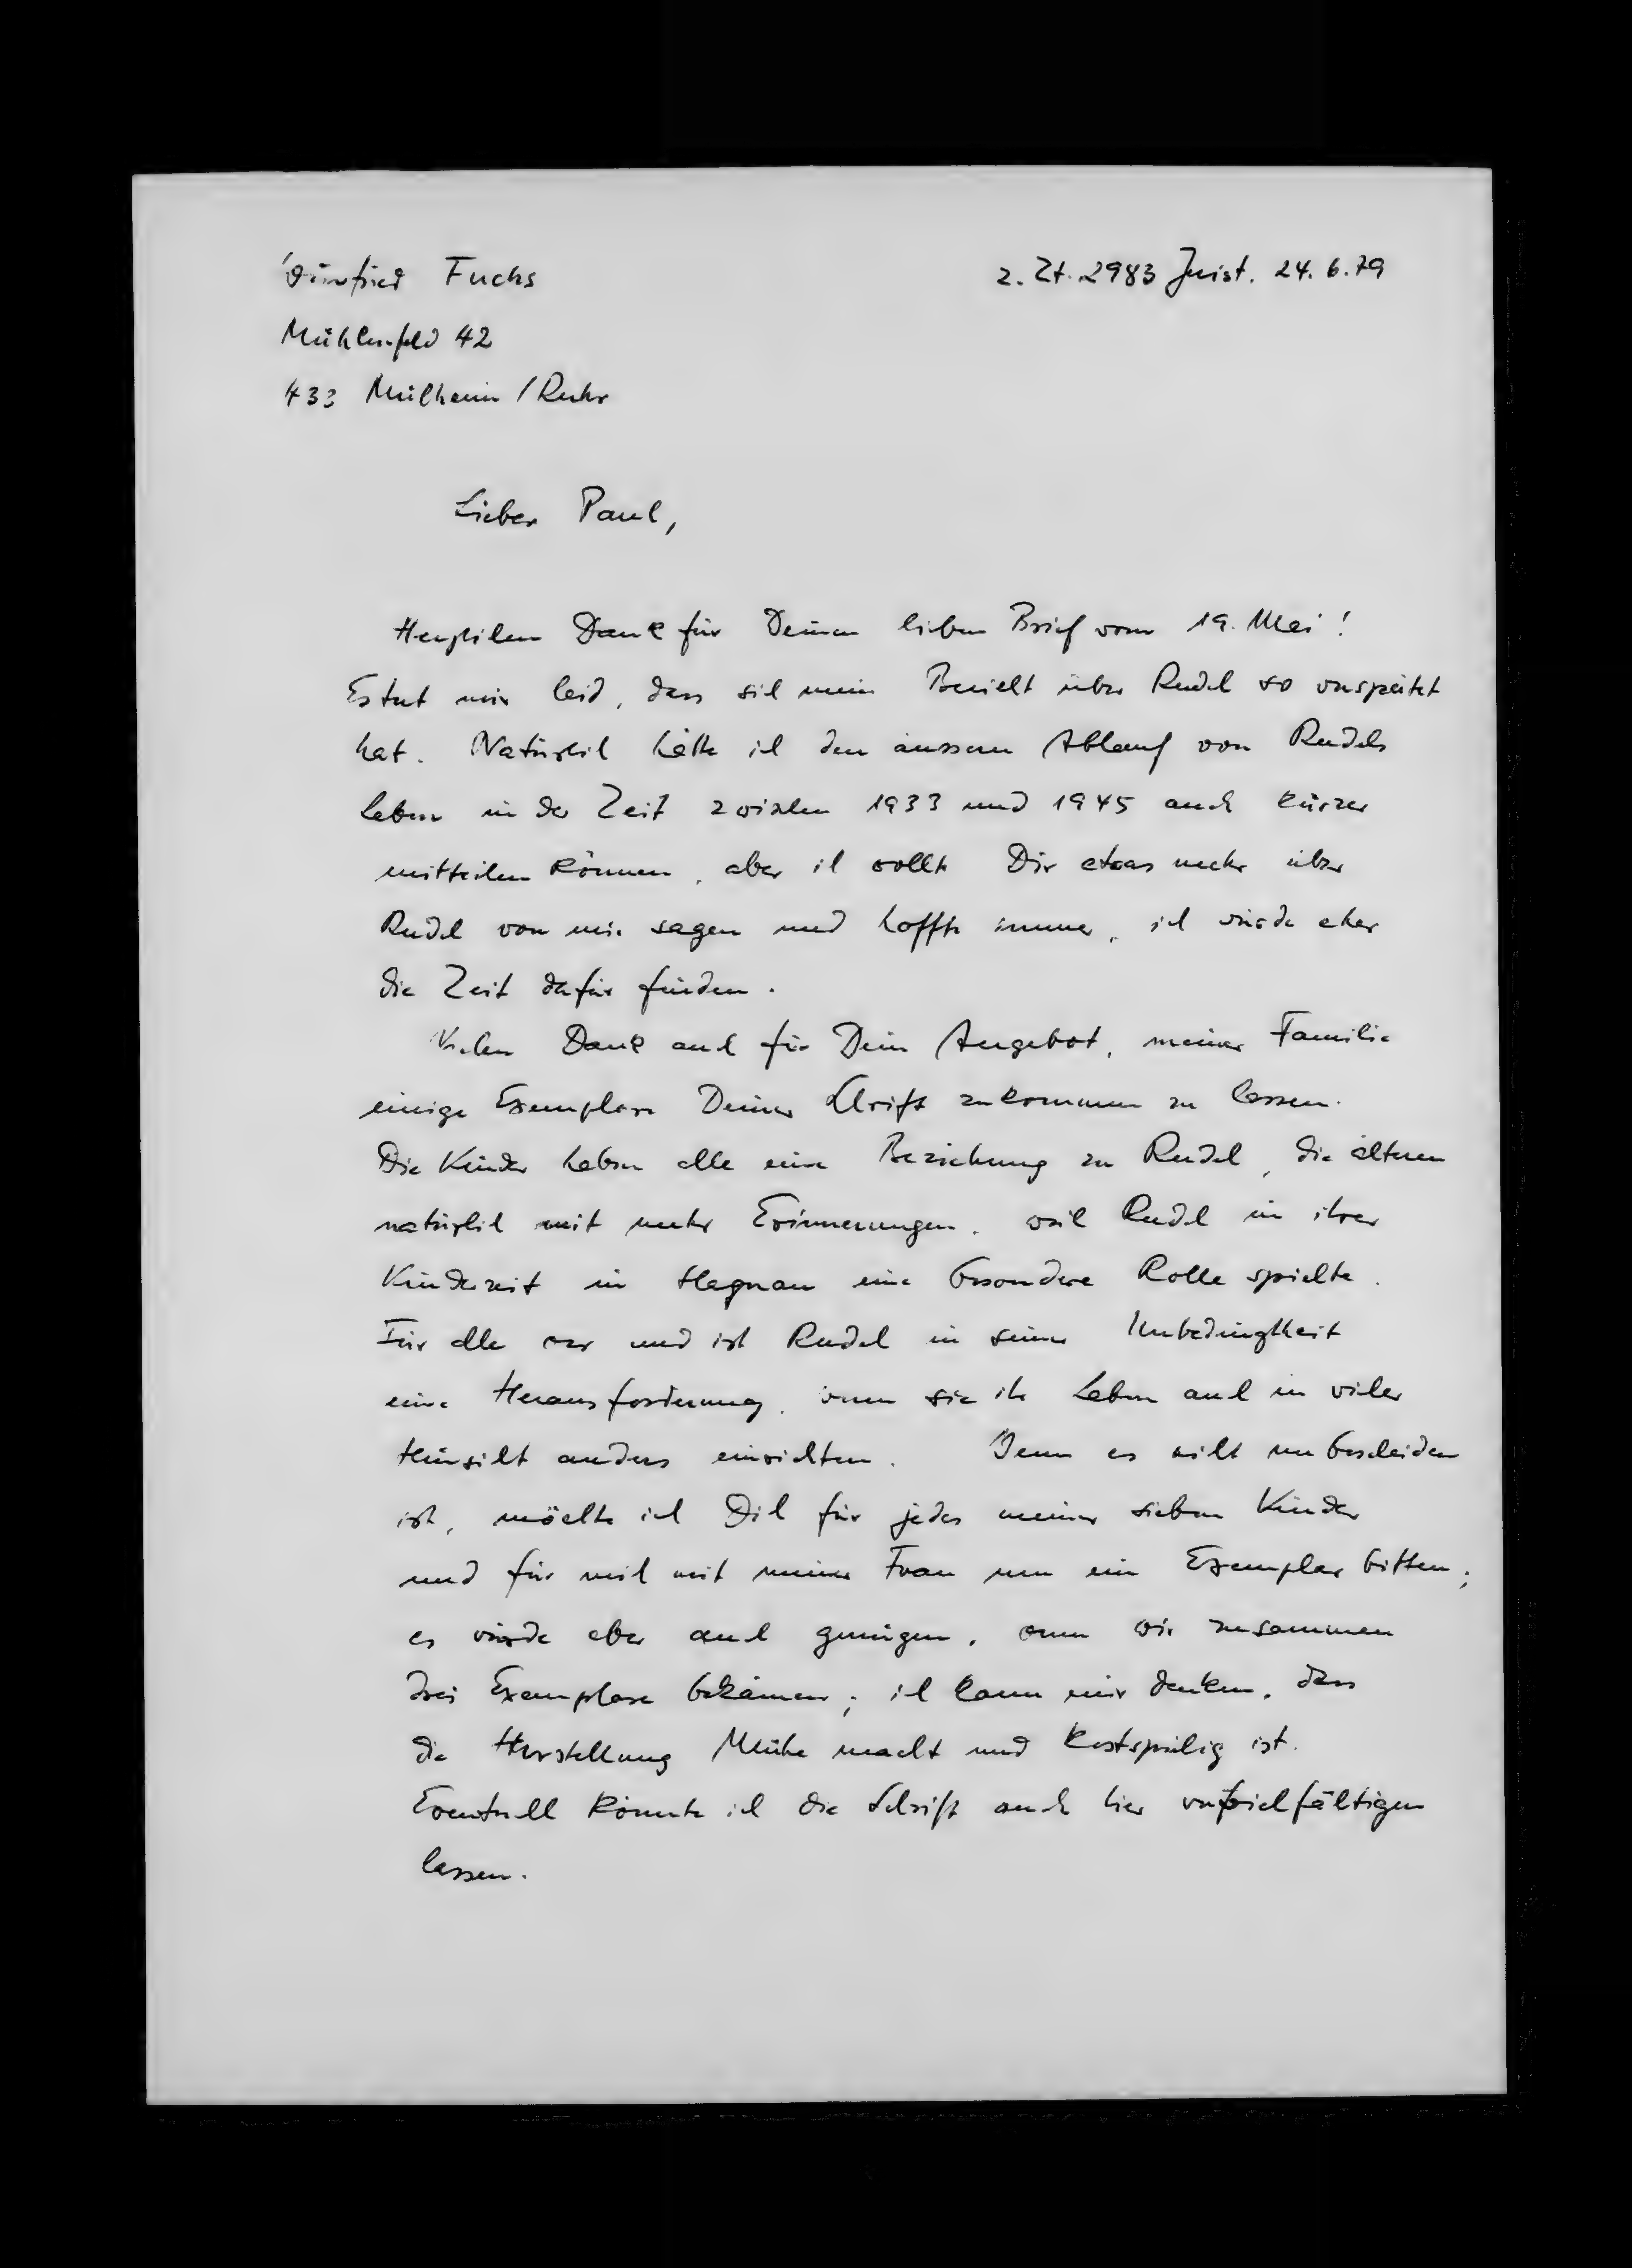 Winfried Fuchs
z. Zt. 2983 Juist. 24.6.79
Mühlenfeld 42
433 Mülheim / Ruhr
Lieber Paul,
Herzlichen Dank für Deinen lieben Brief vom 19. Mai!
Es tut mir leid, dass sich mein Bericht über Rudel so verspätet
hat. Natürlich hätte ich den äusseren Ablauf von Rudels
Leben in der Zeit zwischen 1933 und 1945 auch kürzer
mitteilen können, aber ich wollte Dir etwas mehr über
Rudel von mir sagen und hoffte immer, ich würde eher
die Zeit dafür finden.
Vielen Dank auch für Dein Angebot, meiner Familie
einige Exemplare Deiner Schrift zukommen zu lassen.
Die Kinder haben alle eine Beziehung zu Rudel, die älteren
natürlich mit mehr Erinnerungen, weil Rudel in ihrer
Kinderzeit in Hagnau eine besondere Rolle spielte.
Für alle war und ist Rudel in seiner Unbedingtheit
eine Herausforderung, wenn sie ihr Leben auch in vieler
Hinsicht anders einrichten. Wenn es nicht unbescheiden
ist, möchte ich Dich für jedes meiner sieben Kinder
und für mich mit meiner Frau um ein Exemplar bitten;
es würde aber auch genügen, wenn wir zusammen
drei Exemplare bekämen; ich kann mir denken, dass
die Herstellung Mühe macht und kostspielig ist.
Eventuell könnte ich die Schrift auch hier vervielfältigen
lassen.